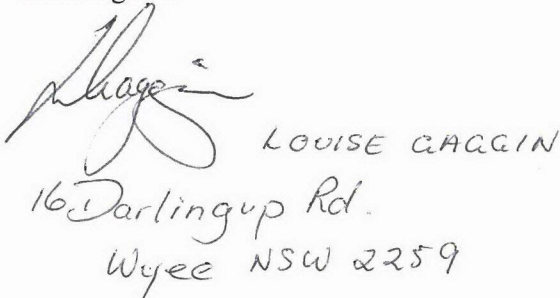 LGaggin
LOUISE GAGGIN
16 Darlingup Rd.
Wyee NSW 2259